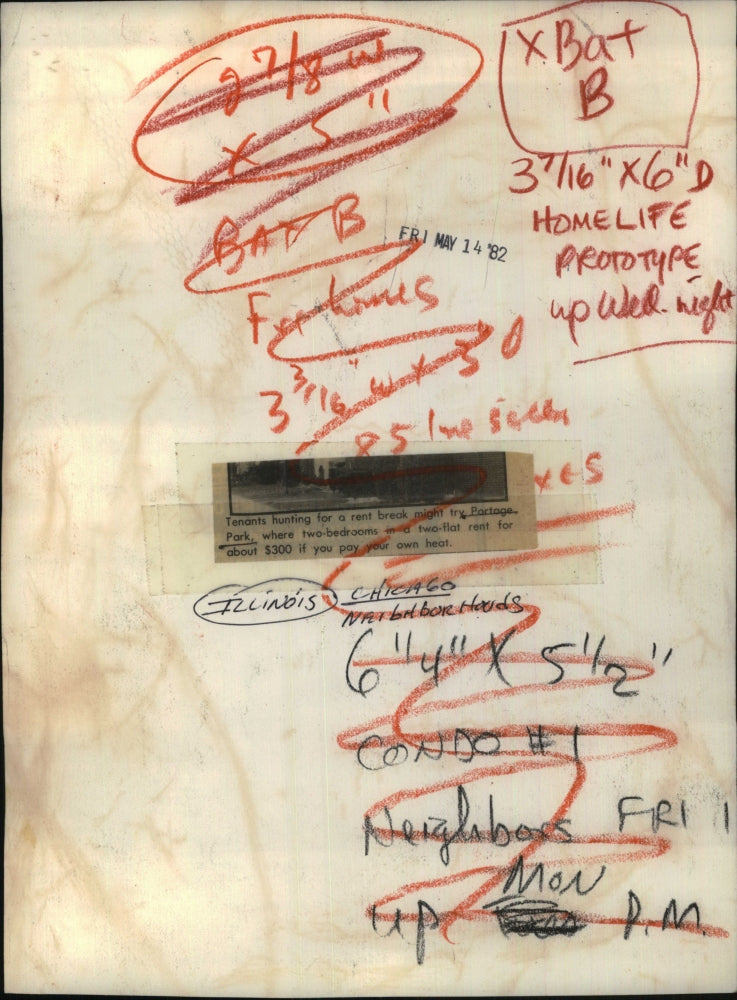 2 7/8 w
x 5"
x Bat
B
3 7/16" x 6" D
HOMELIFE
PROTOTYPE
up Wed. night
BAT B
FRI MAY 14 '82
For homes
3 3/16" w x 3" D
85 line screen
xes
Tenants hunting for a rent break might try Portage
Park, where two-bedrooms in a two-flat rent for
about $300 if you pay your own heat.
ILLINOIS CHICAGO
NEIGHBORHOODS
6"4" X 5 1/2"
CONDO #1
Neighbors FRI 1
MON
up P.M.